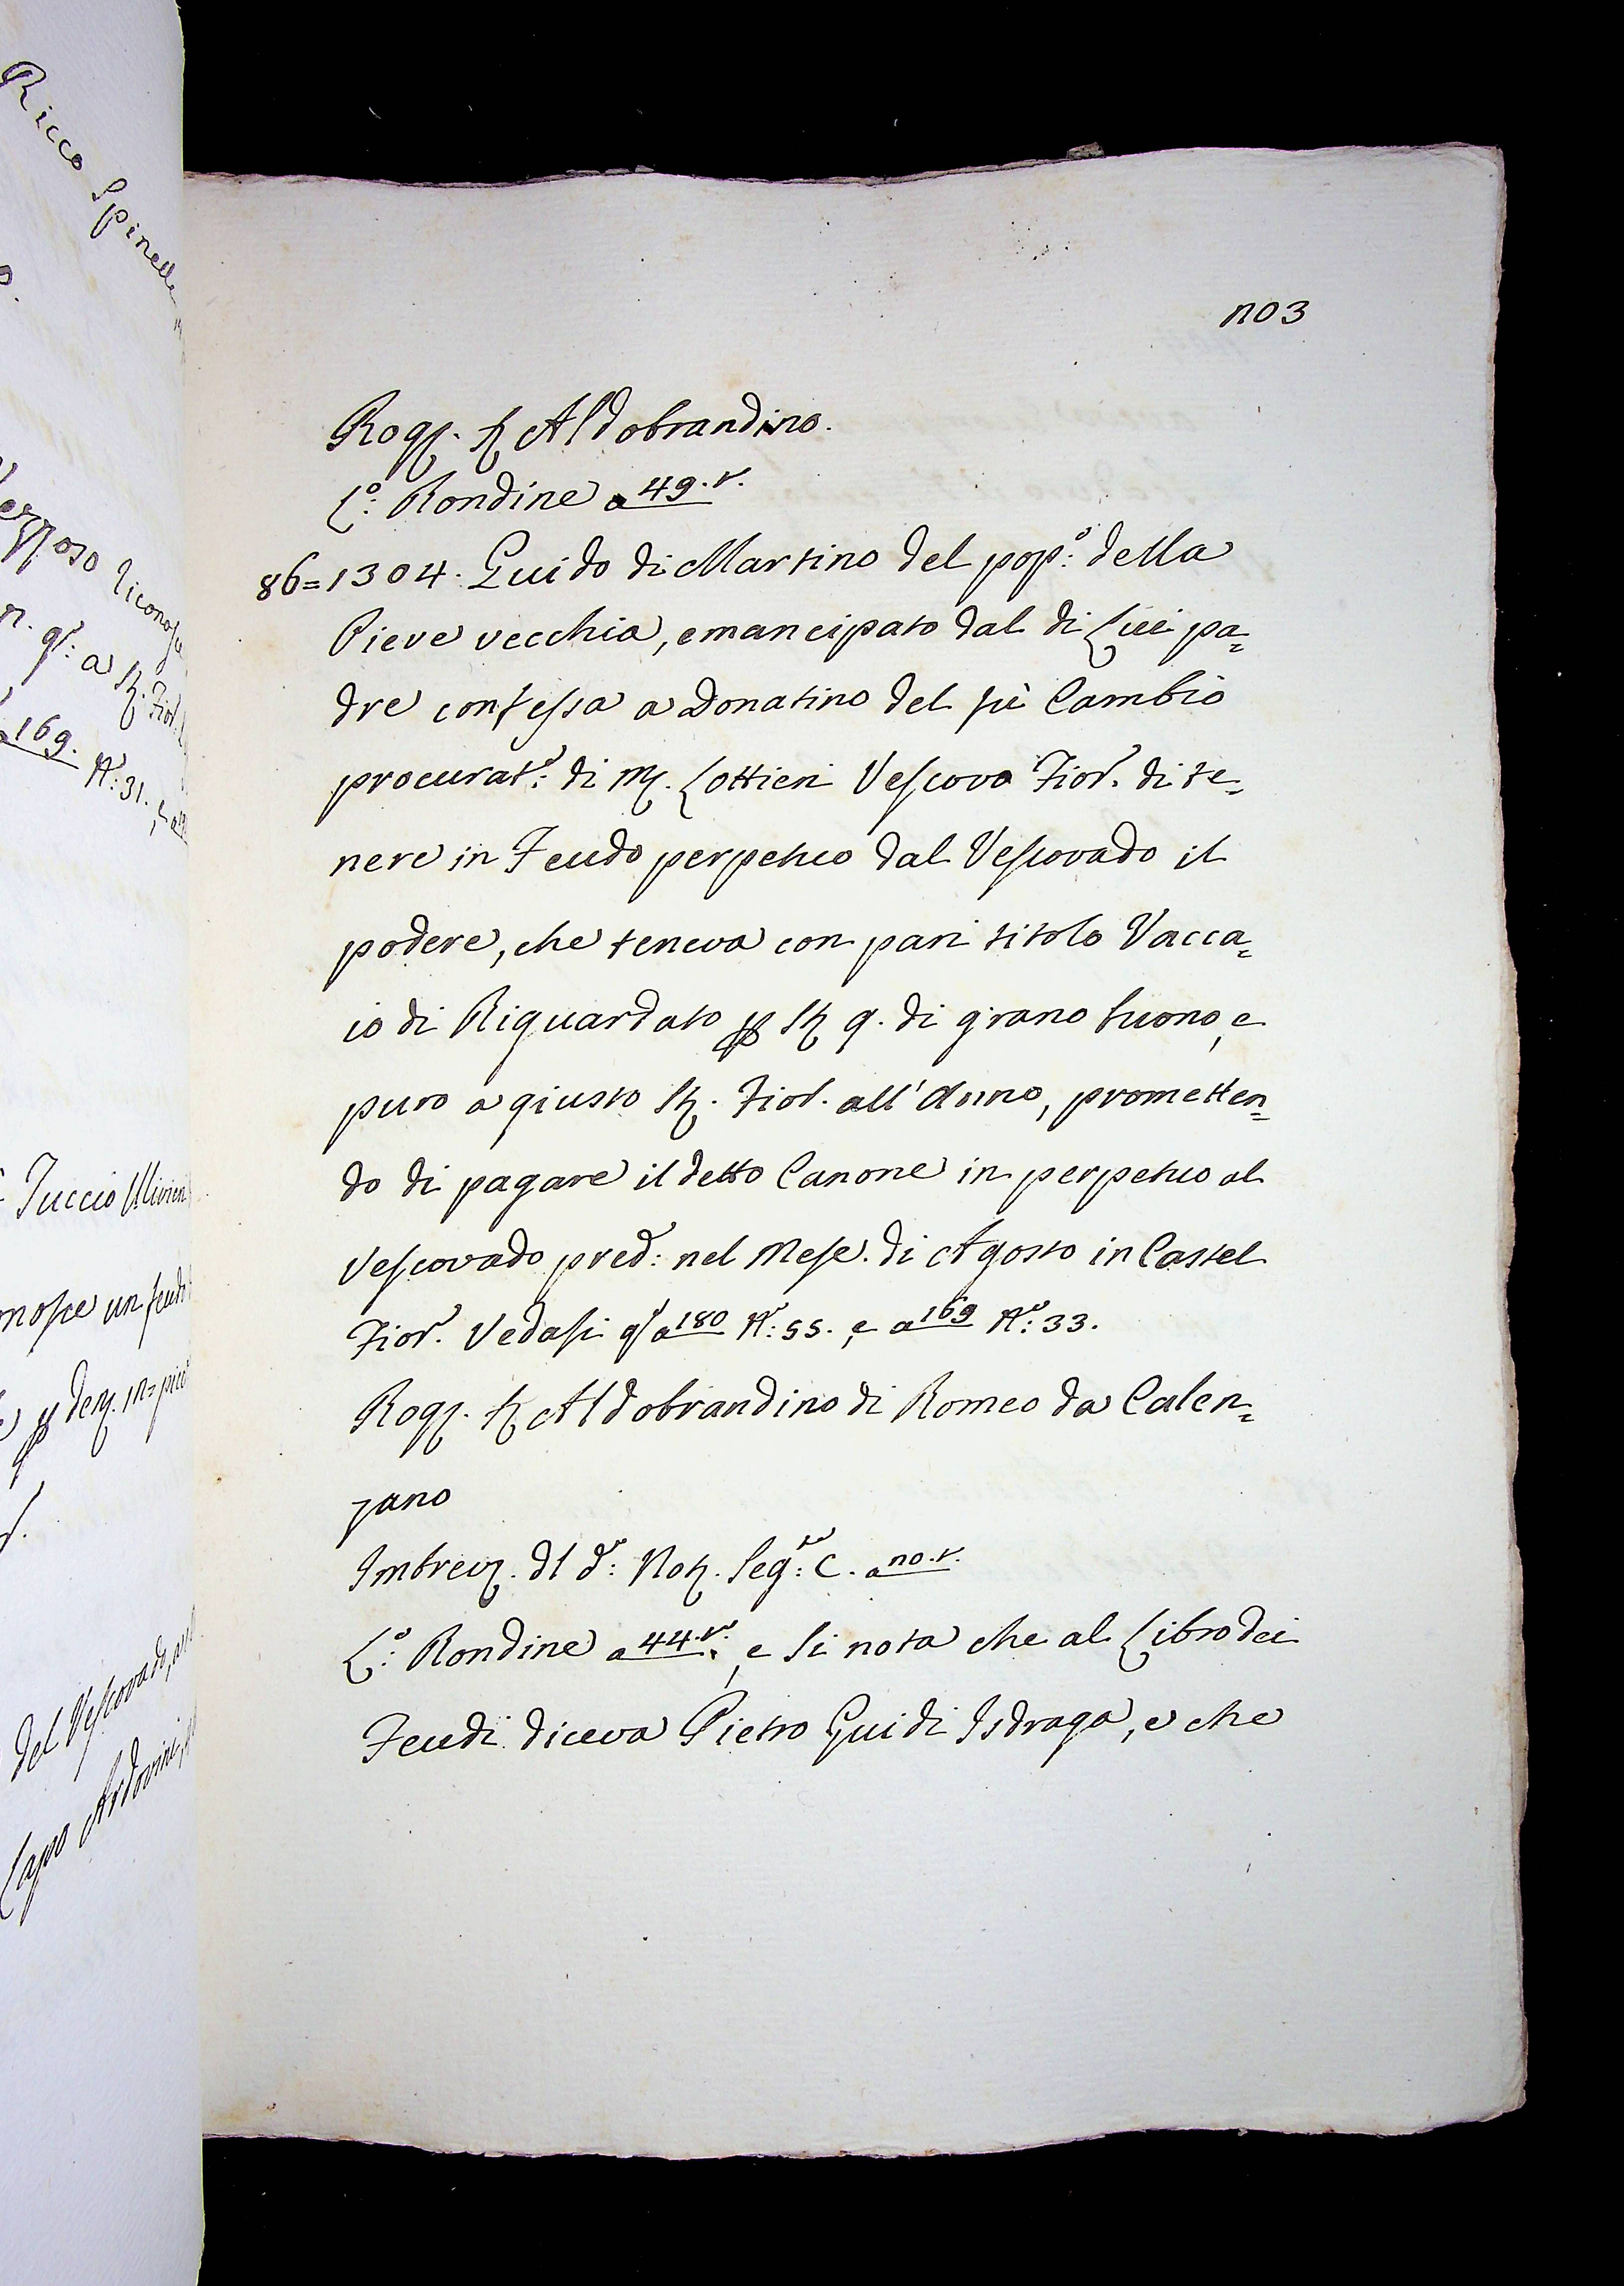 Ricco Spinelli
169. N.º: 31.
Tuccio Ulivieri
un feudo
Del Vescovado,
Lapo Ardovini,
1103
Rog. Aldobrandino.
L.º: Rondine a 49.v.
86=1304. Guido di Martino del pop.º: della
Pieve vecchia, emancipato dal di Lui pa=
dre confessa a Donatino del fù Cambio
procurat.e: di M. Lottieri Vescovo Fior. di te=
nere in Feudo perpetuo dal Vescovado il
podere, che teneva con pari titolo Vacca=
io di Riguardato p St 9. di grano buono, e
puro a giusto St. Fior. all'Anno, prometten=
do di pagare il detto Canone in perpetuo al
Vescovado pred: nel Mese di Agosto in Castel
Fior. Vedasi q a 180 N.º: 55. e a 169 N.º: 33.
Rog. Aldobrandino di Romeo da Calen=
zano
Imbrev. dl d.º: Not. Seg.to: C. a 110.v.
L.º: Rondine a 44.v., e si nota che al Libro dei
Feudi diceva Pietro Guidi Isdraga, e che